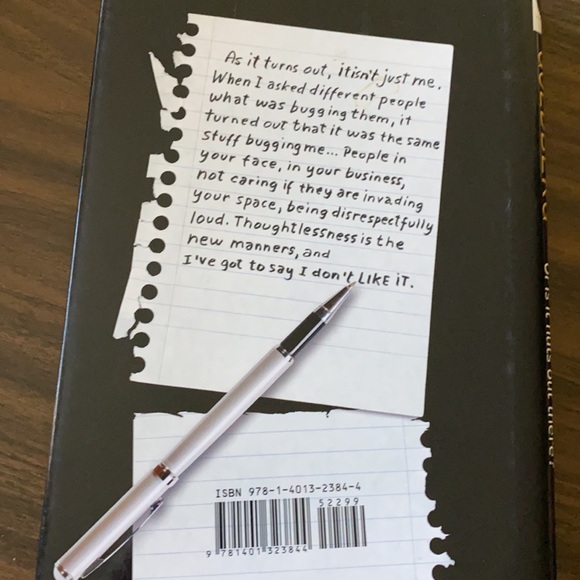 As it turns out, it isn't just me.
When I asked different people
what was bugging them, it
turned out that it was the same
stuff bugging me... People in
your face, in your business,
not caring if they are invading
your space, being disrespectfully
loud. Thoughtlessness is the
new manners, and
I've got to say I don't LIKE iT.
ISBN 978-1-4013-2384-4
52299
9 781401 323844
GOLDBERG